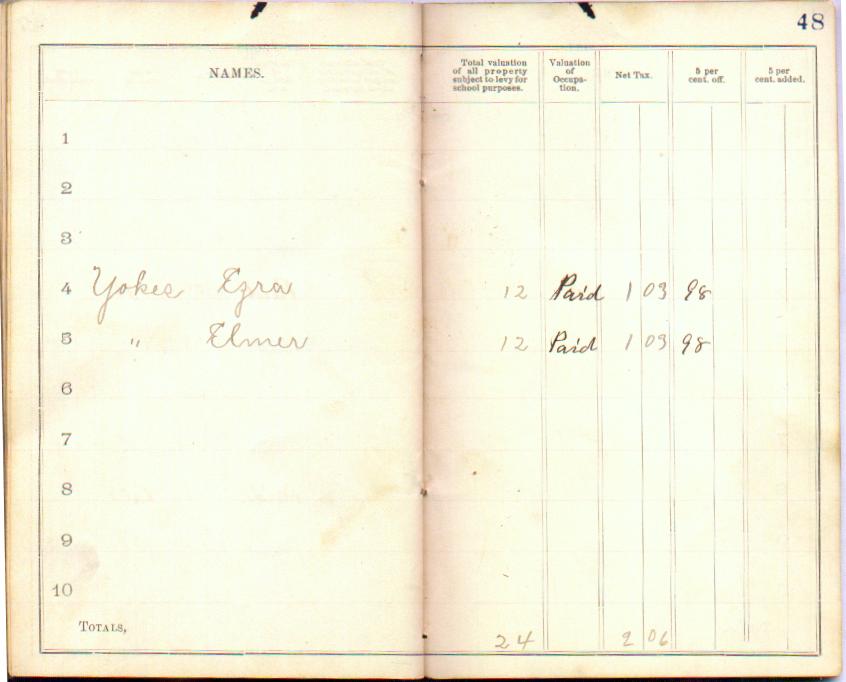 48
NAMES. Total valuation of all property subject to levy for school purposes. Valuation of Occupa- tion. Net Tax. 5 per cent. off. 5 per cent. added.
1
2
3
4 Yokes Ezra 12 Paid 1 03 98
5 " Elmer 12 Paid 1 03 98
6
7
8
9
10
TOTALS, 24 2 06